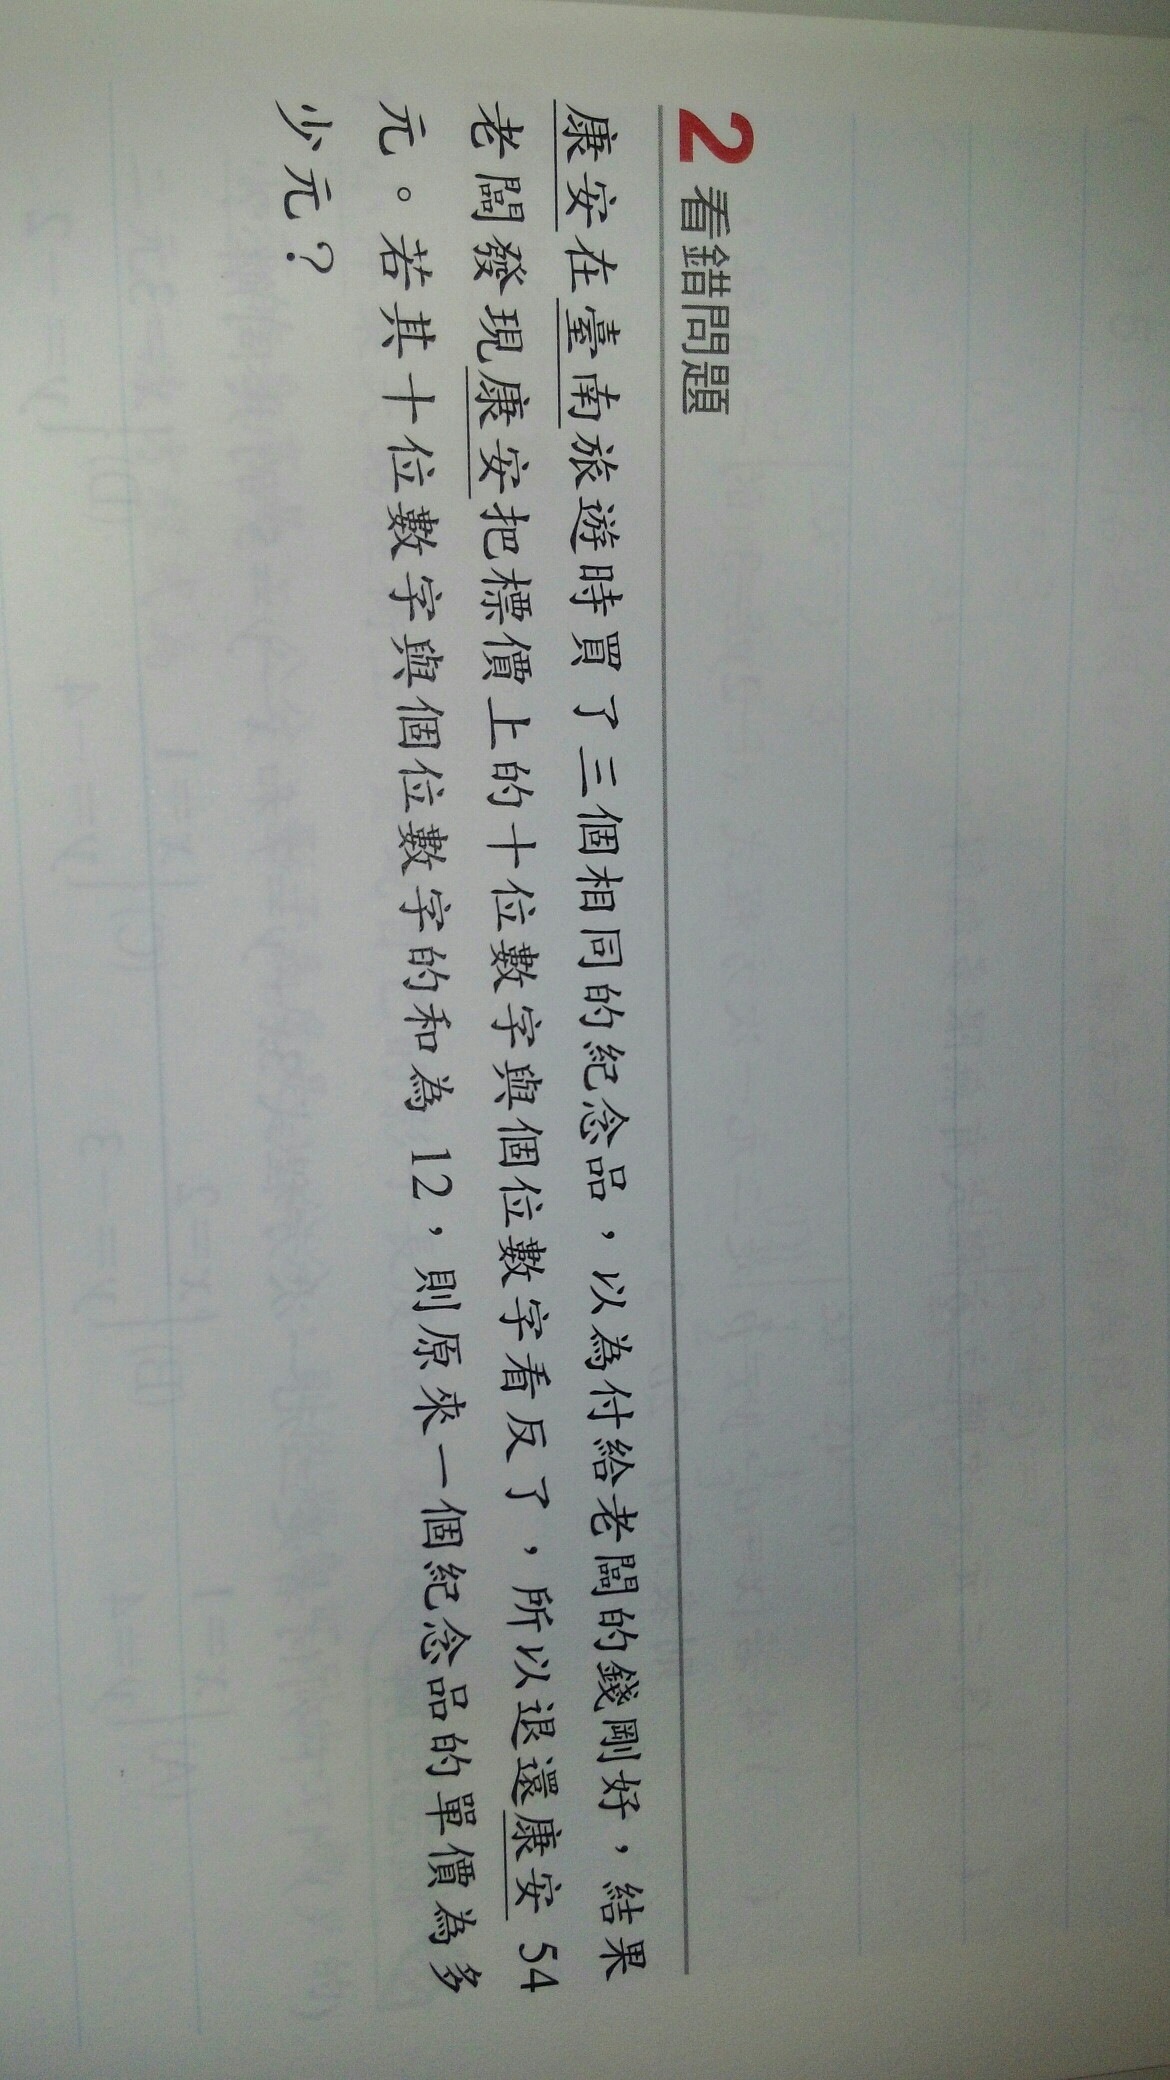 2 看錯問題
康安在臺南旅遊時買了三個相同的紀念品，以為付給老闆的錢剛好，結果
老闆發現康安把標價上的十位數字與個位數字看反了，所以退還康安 54
元。若其十位數字與個位數字的和為 12，則原來一個紀念品的單價為多
少元？